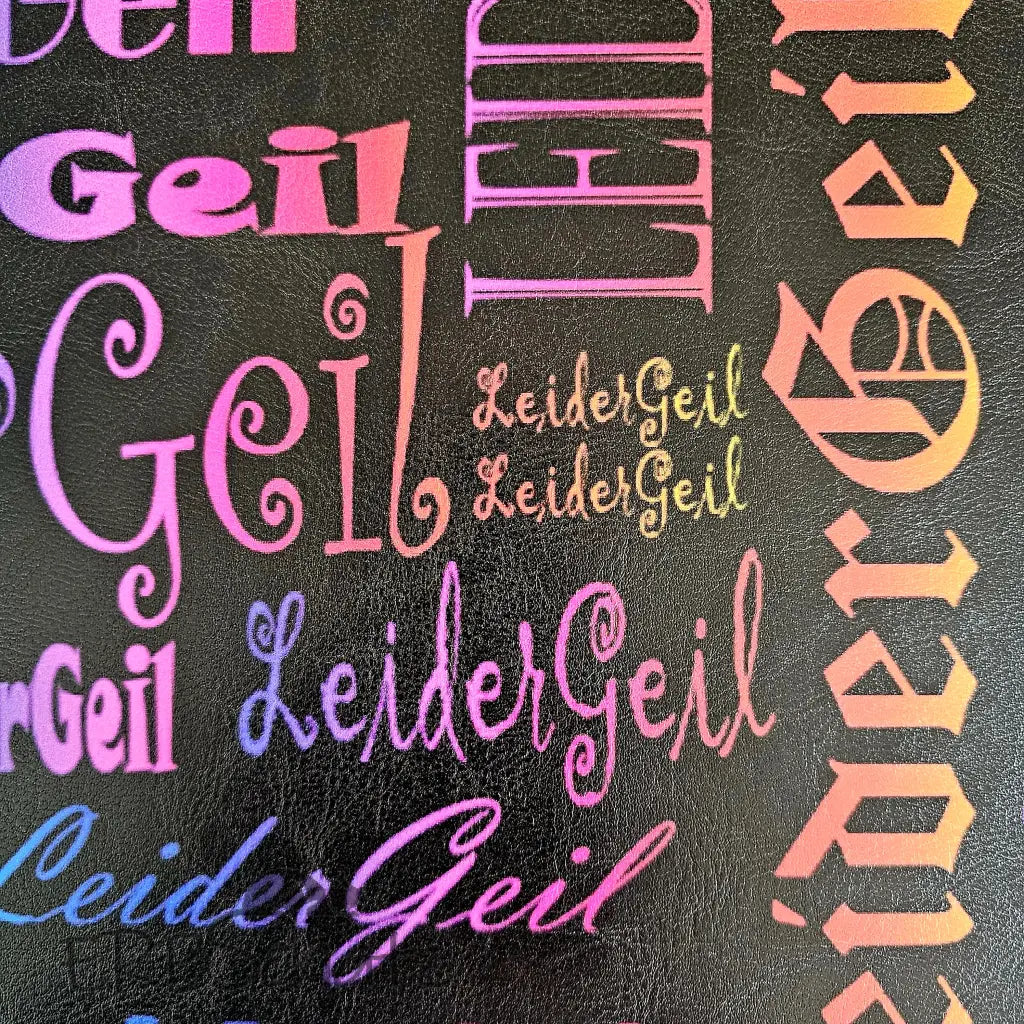 Geil
LEID
Geil
LeiderGeil
LeiderGeil
rGeil
LeiderGeil
Leider Geil
eider Geil